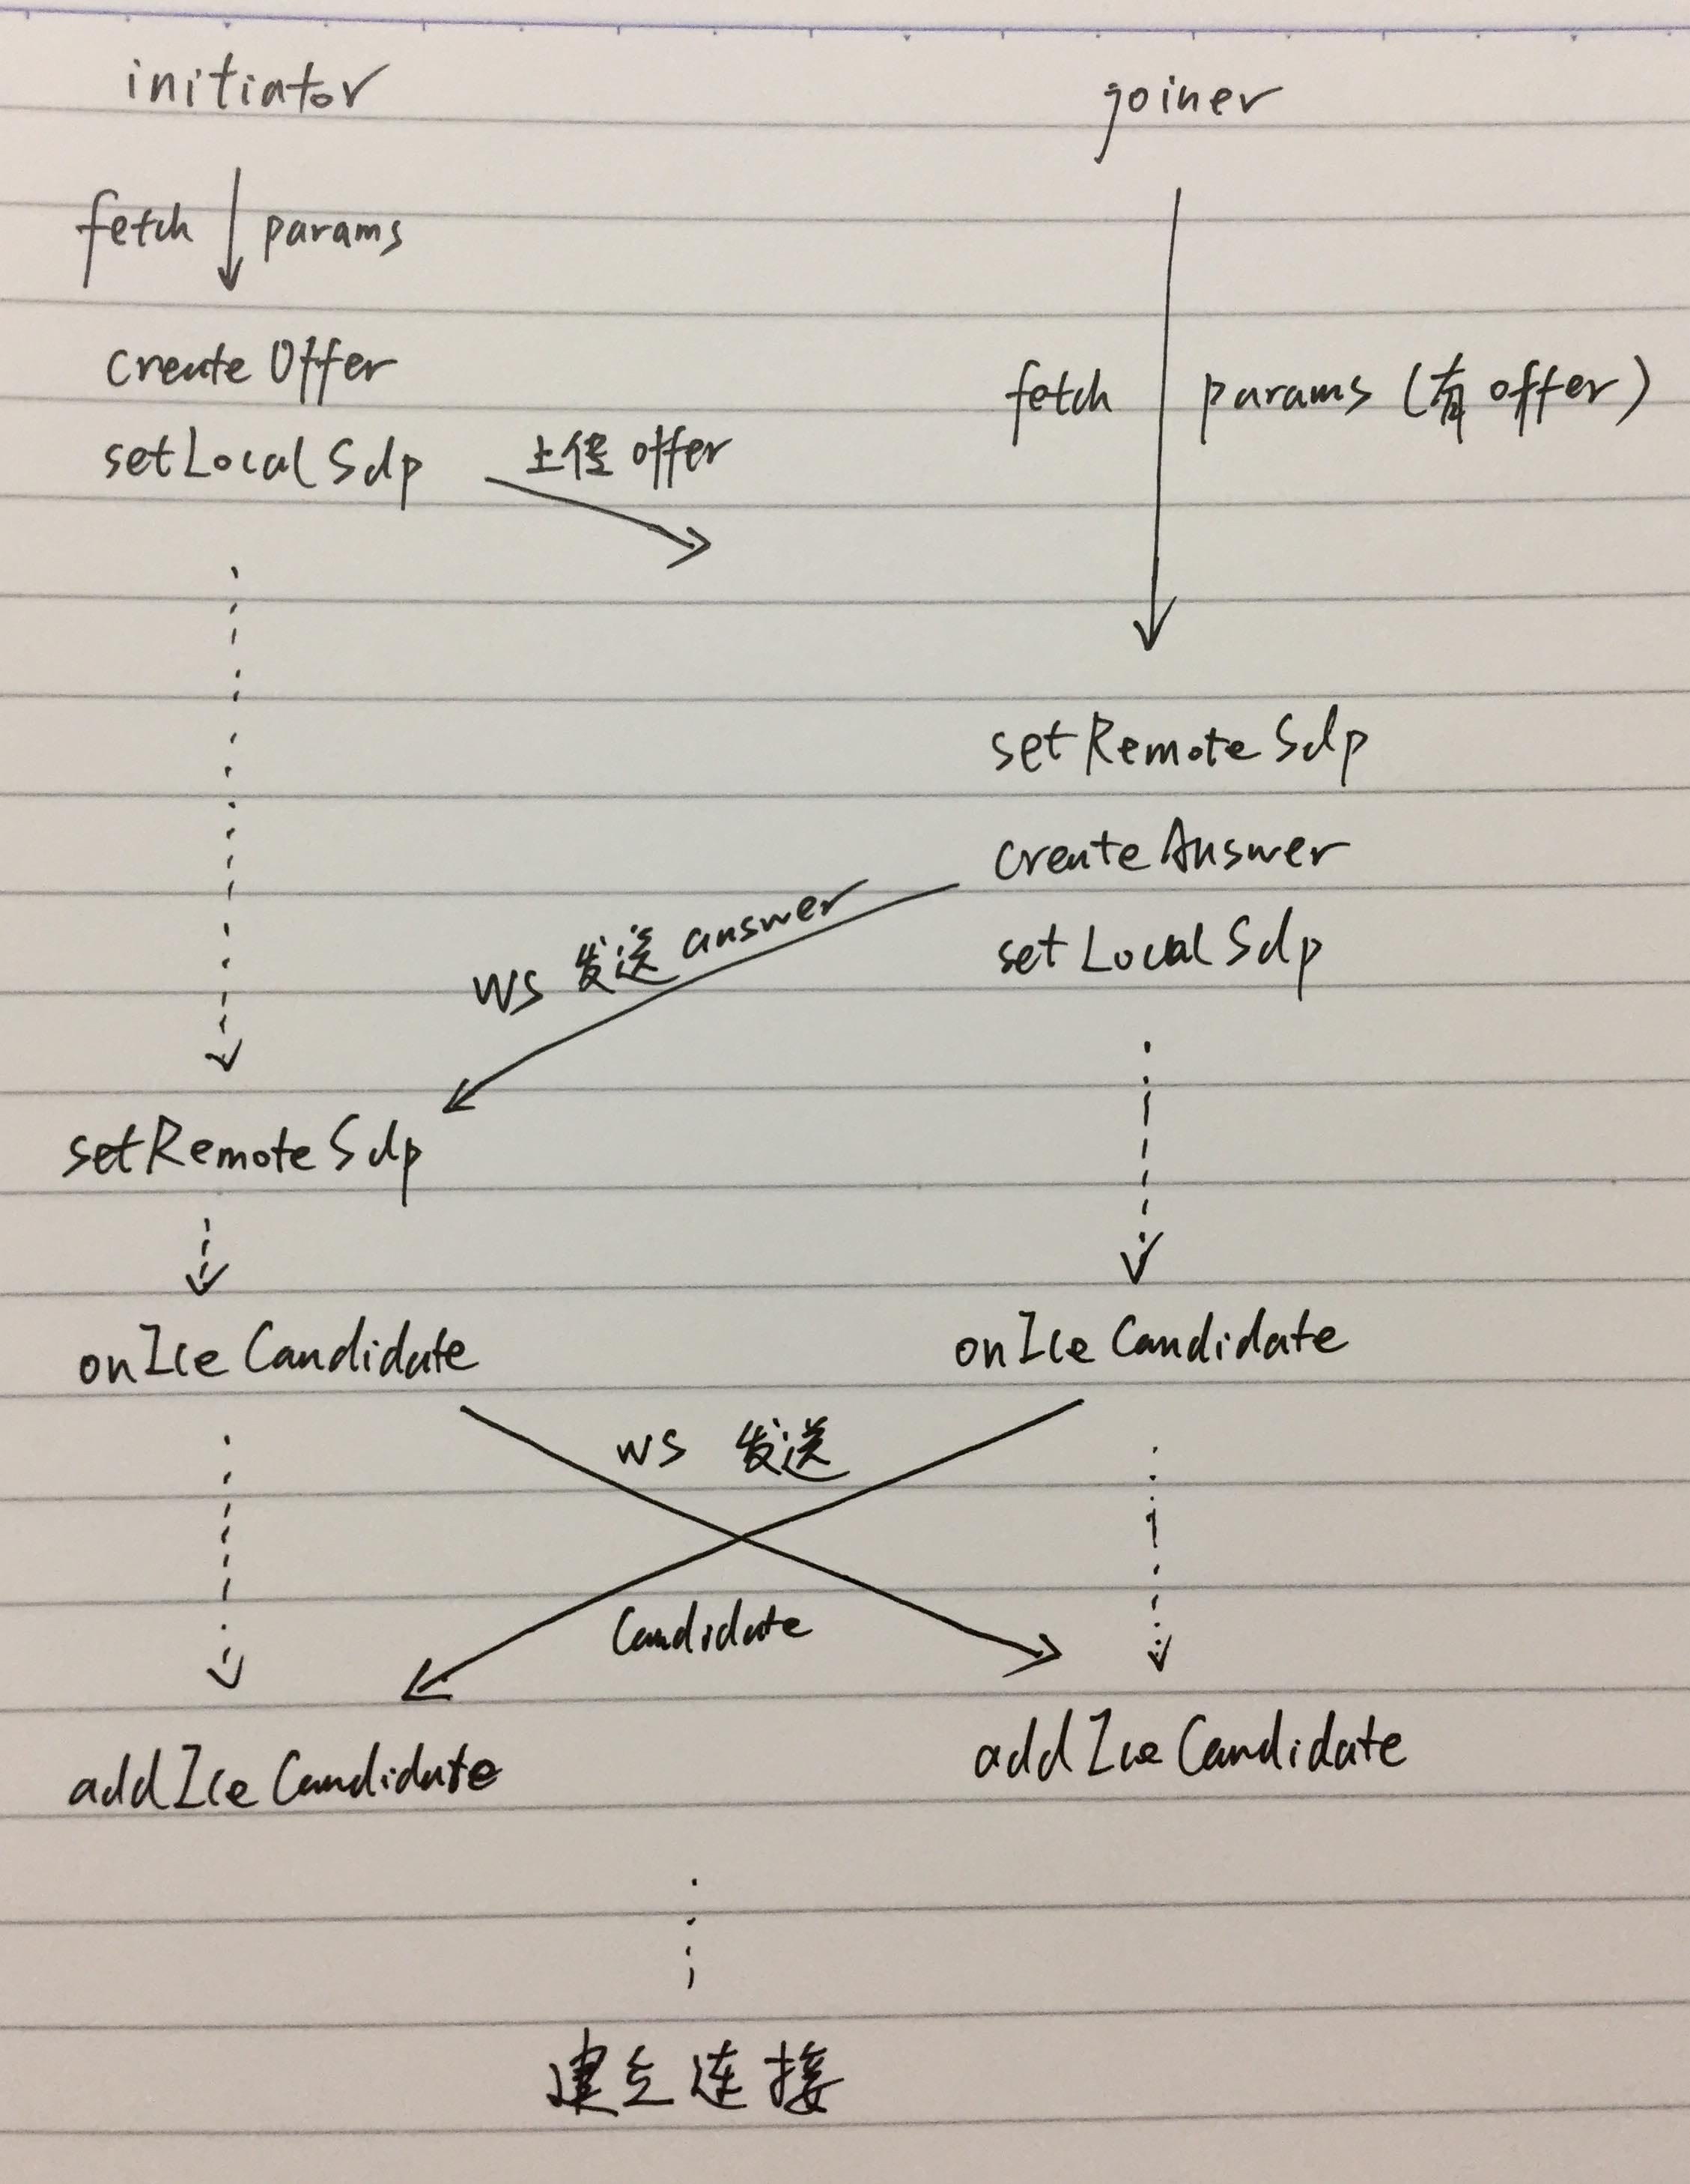 initiator
joiner
fetch params
createOffer
fetch params (有 offer)
setLocalSdp
上传 offer
setRemoteSdp
createAnswer
WS 发送 answer
setLocalSdp
setRemoteSdp
onIceCandidate
onIceCandidate
WS 发送
Candidate
addIceCandidate
addIceCandidate
建立连接